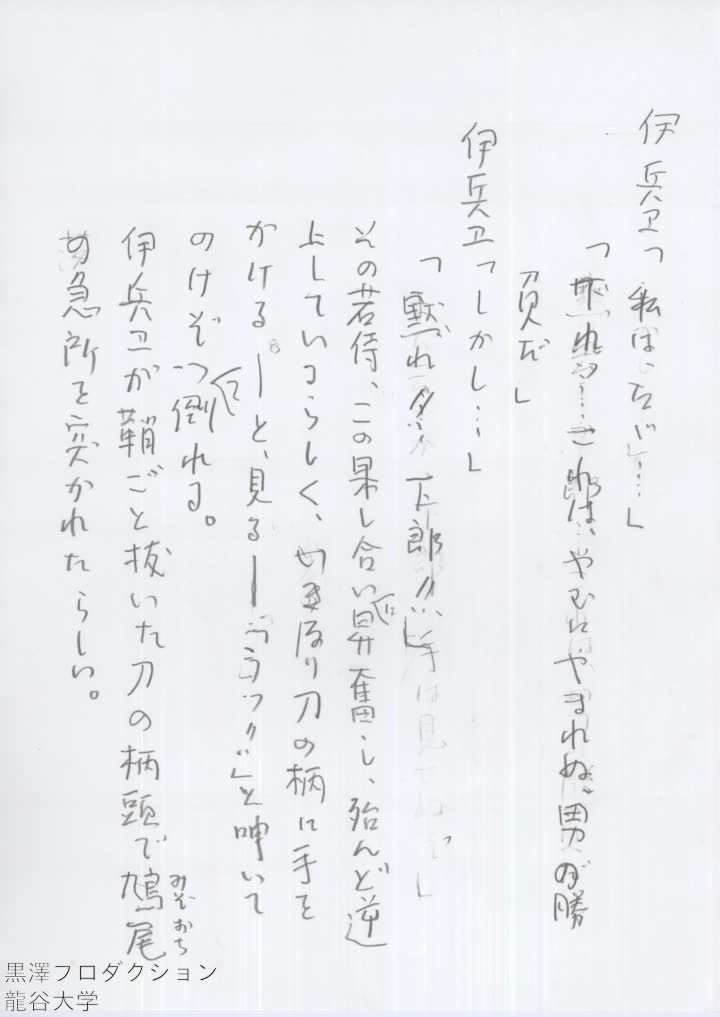 伊兵卫「私は、たゞ…」
「黙れッ…これは、やむにやまれぬ男の勝
負だ」
伊兵卫「しかし…」
「黙れッ、下郎ッ！」
その若侍、この果し合いに昇奮し、殆んど逆
上しているらしく、いきなり刀の柄に手を
かける。―と、見る―「うッ！」と呻いて
のけぞって倒れる。
伊兵卫が鞘ごと抜いた刀の柄頭で鳩尾
みぞおち
の急所を突かれたらしい。
黒澤プロダクション
龍谷大学